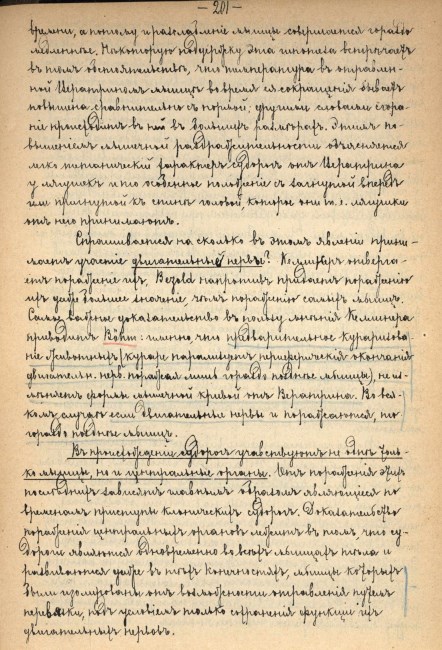 — 201 —
времени, а потому и разслабленіе мышцы совершается гораздо
медленнѣе. Нѣкоторую поддержку эта гипотеза встрѣчаетъ
въ томъ обстоятельствѣ, что температура въ отравлен-
ной Вератриномъ мышцѣ во время ея сокращенія бываетъ
повышена сравнительно съ нормой; другими словами сгора-
ніе происходитъ въ ней въ большихъ размѣрахъ. Этимъ по-
вышеніемъ мышечной раздражительности объясняется
легко тетаническій характеръ судорогъ отъ Вератрина
у лягушекъ и то особенное положеніе съ загнутой впередъ
или пригнутой къ спинѣ головой, которое они т. е. лягушки
отъ него принимаютъ.
Спрашивается на сколько въ этомъ явленіи прини-
маетъ участіе двигательные нервы? Келликеръ отверга-
етъ пораженіе ихъ, Bezold напротивъ придаетъ пораженію
ихъ даже большее значеніе, чѣмъ пораженію самыхъ мышцъ.
Самое важное доказательство въ пользу мнѣнія Келликера
приводитъ Böhm: именно, что предварительное кураризова-
ніе животныхъ (кураре парализуетъ периферическія окончанія
двигательн. нерв. поражая лишь гораздо позднѣе мышцы), не из-
мѣняетъ формы мышечной кривой отъ Вератрина. Во вся-
комъ случаѣ если двигательные нервы и поражаются, то
гораздо позднѣе мышцъ.
Въ происхожденіи судорогъ участвуютъ не однѣ толь-
ко мышцы, но и центральные органы. Отъ пораженія этихъ
послѣднихъ зависятъ главнымъ образомъ являющіеся по
временамъ приступы клоническихъ судорогъ. Доказательство
пораженія центральныхъ органовъ лежитъ въ томъ, что су-
дороги являются одновременно во всѣхъ мышцахъ тѣла и
развиваются даже въ тѣхъ конечностяхъ, мышцы которыхъ
были изолированы отъ возможности отравленія путемъ
перевязки, подъ условіемъ только сохраненія функціи ихъ
двигательныхъ нервовъ.